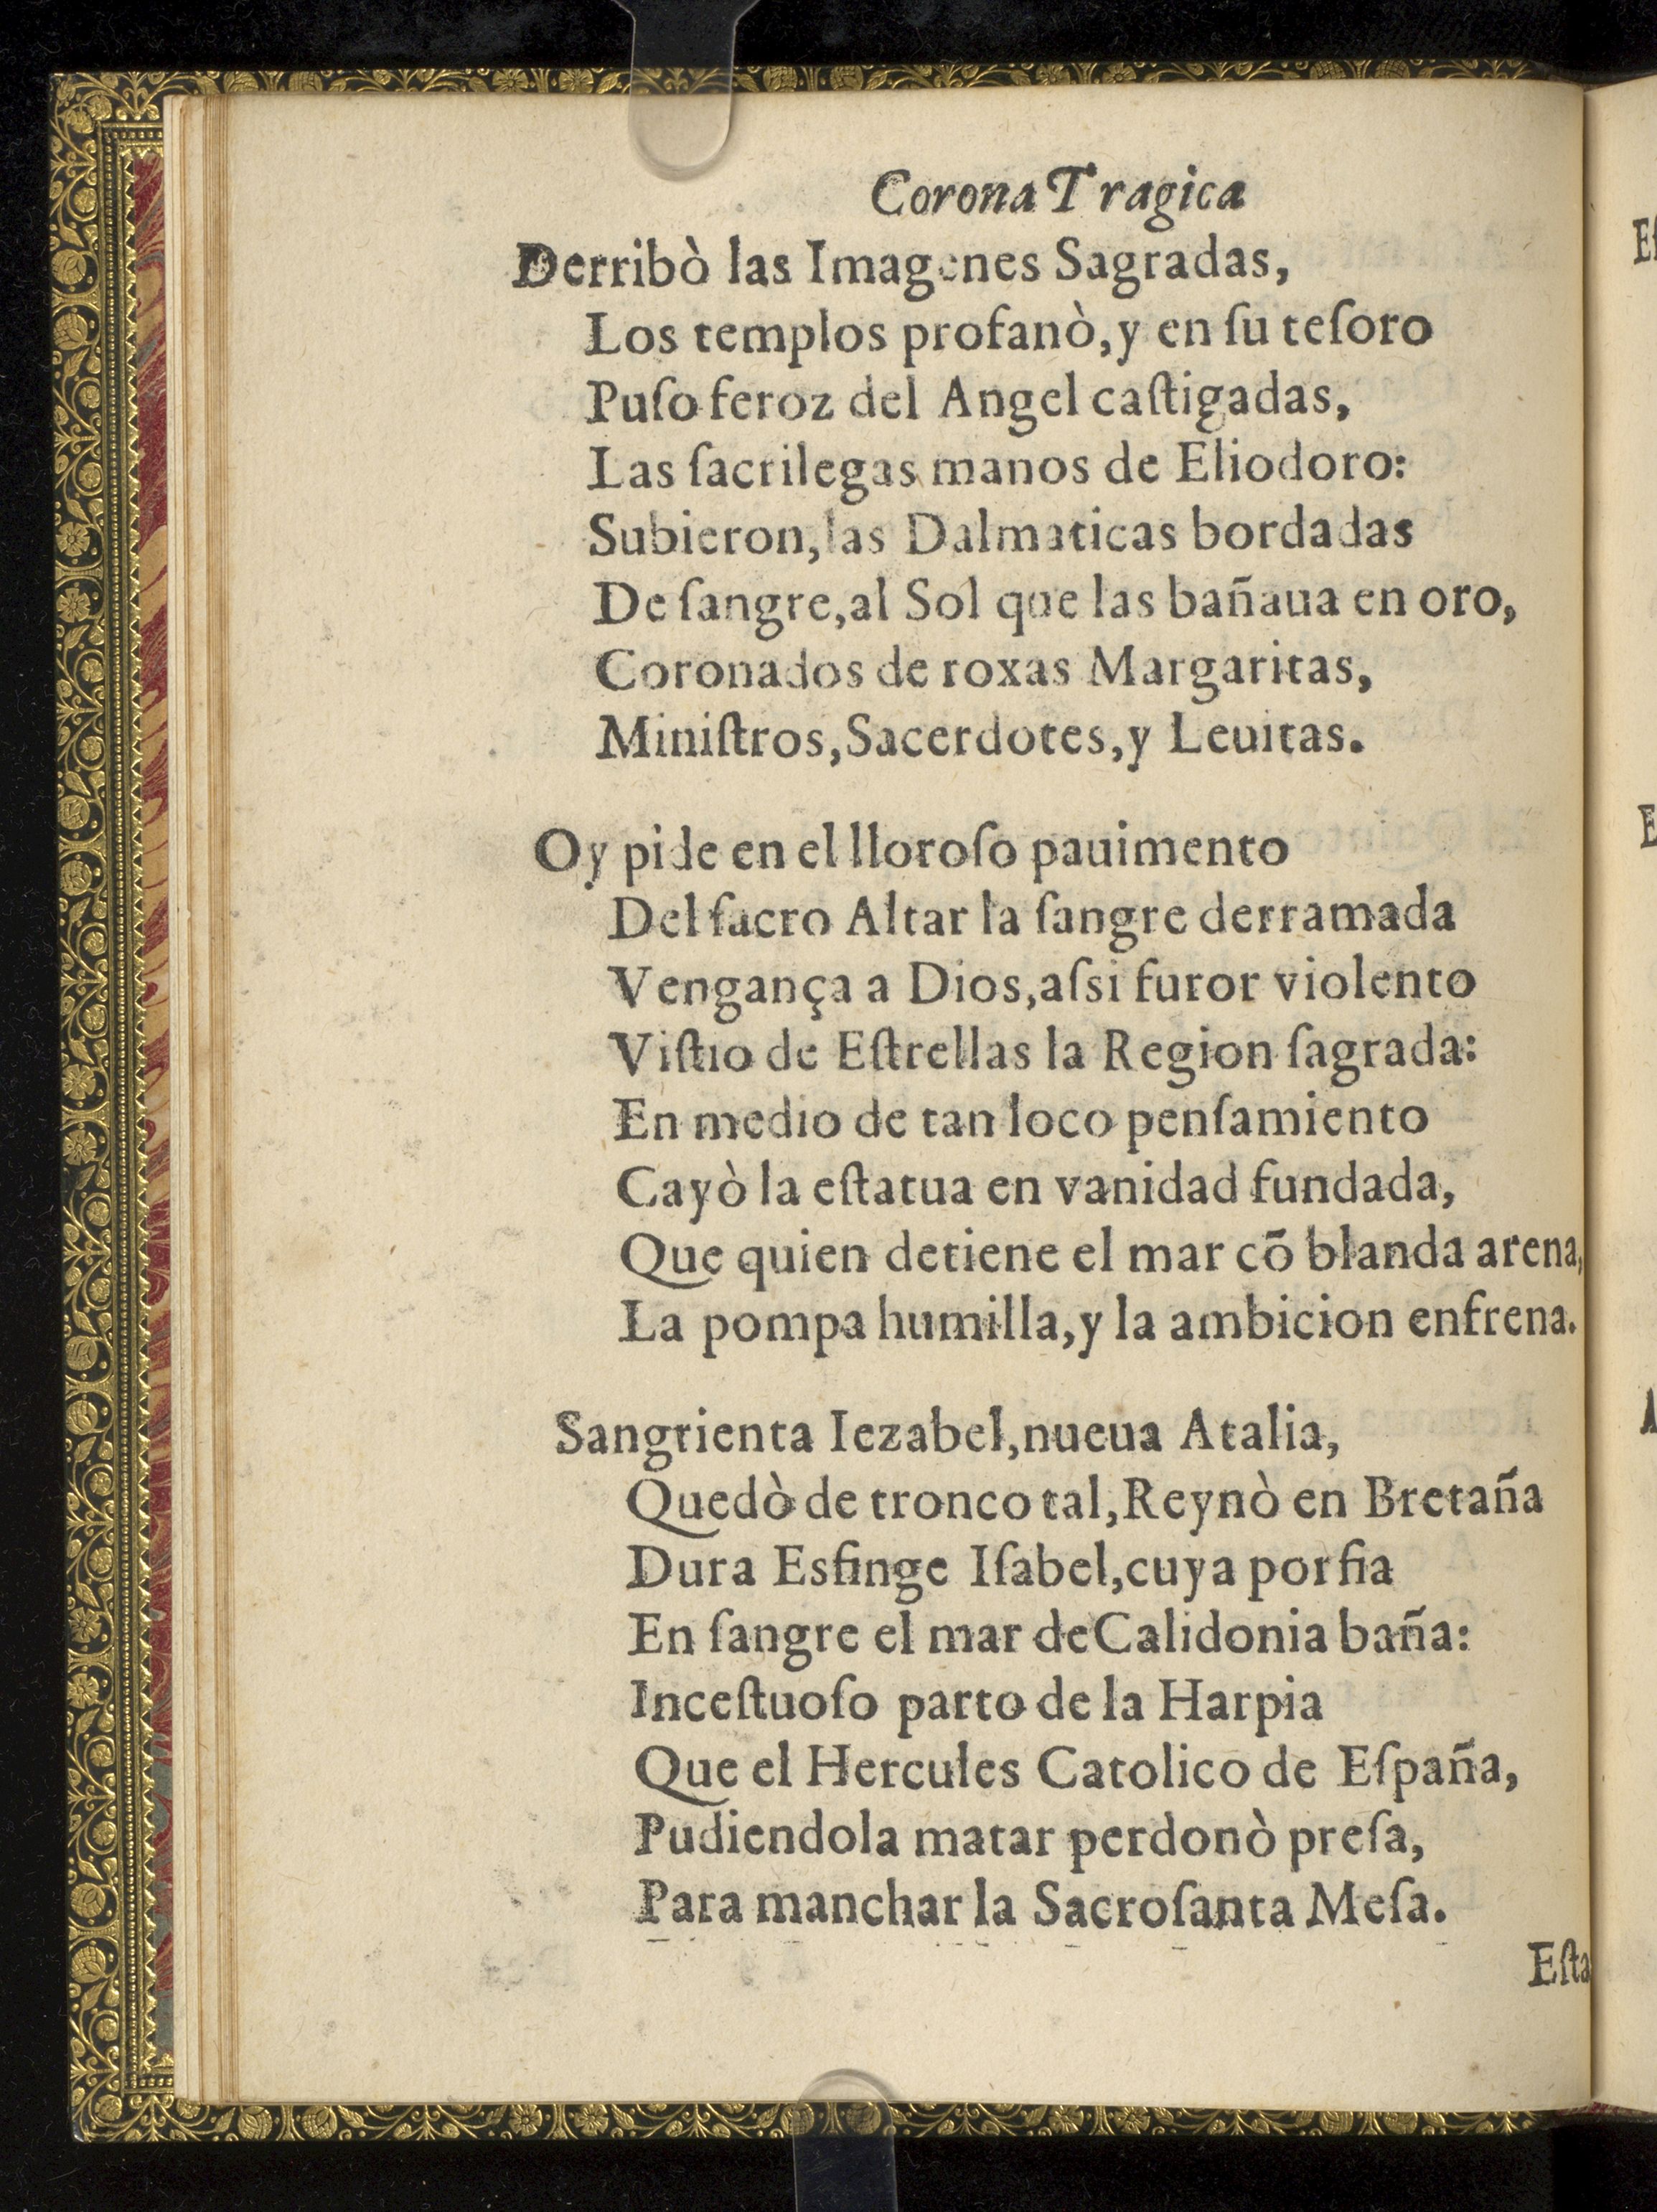 Corona Tragica
Derribò las Imagenes Sagradas,
Los templos profanò, y en ſu teſoro
Puſo feroz del Angel caſtigadas,
Las ſacrilegas manos de Eliodoro:
Subieron, las Dalmaticas bordadas
De ſangre, al Sol que las bañaua en oro,
Coronados de roxas Margaritas,
Miniſtros, Sacerdotes, y Leuitas.
Oy pide en el lloroſo pauimento
Del ſacro Altar la ſangre derramada
Vengança a Dios, aſsi furor violento
Viſtio de Eſtrellas la Region ſagrada:
En medio de tan loco penſamiento
Cayò la eſtatua en vanidad fundada,
Que quien detiene el mar cõ blanda arena,
La pompa humilla, y la ambicion enfrena.
Sangrienta Iezabel, nueua Atalia,
Quedò de tronco tal, Reynò en Bretaña
Dura Esfinge Iſabel, cuya porfia
En ſangre el mar de Calidonia baña:
Inceſtuoſo parto de la Harpia
Que el Hercules Catolico de Eſpaña,
Pudiendola matar perdonò preſa,
Para manchar la Sacroſanta Meſa.
Eſta